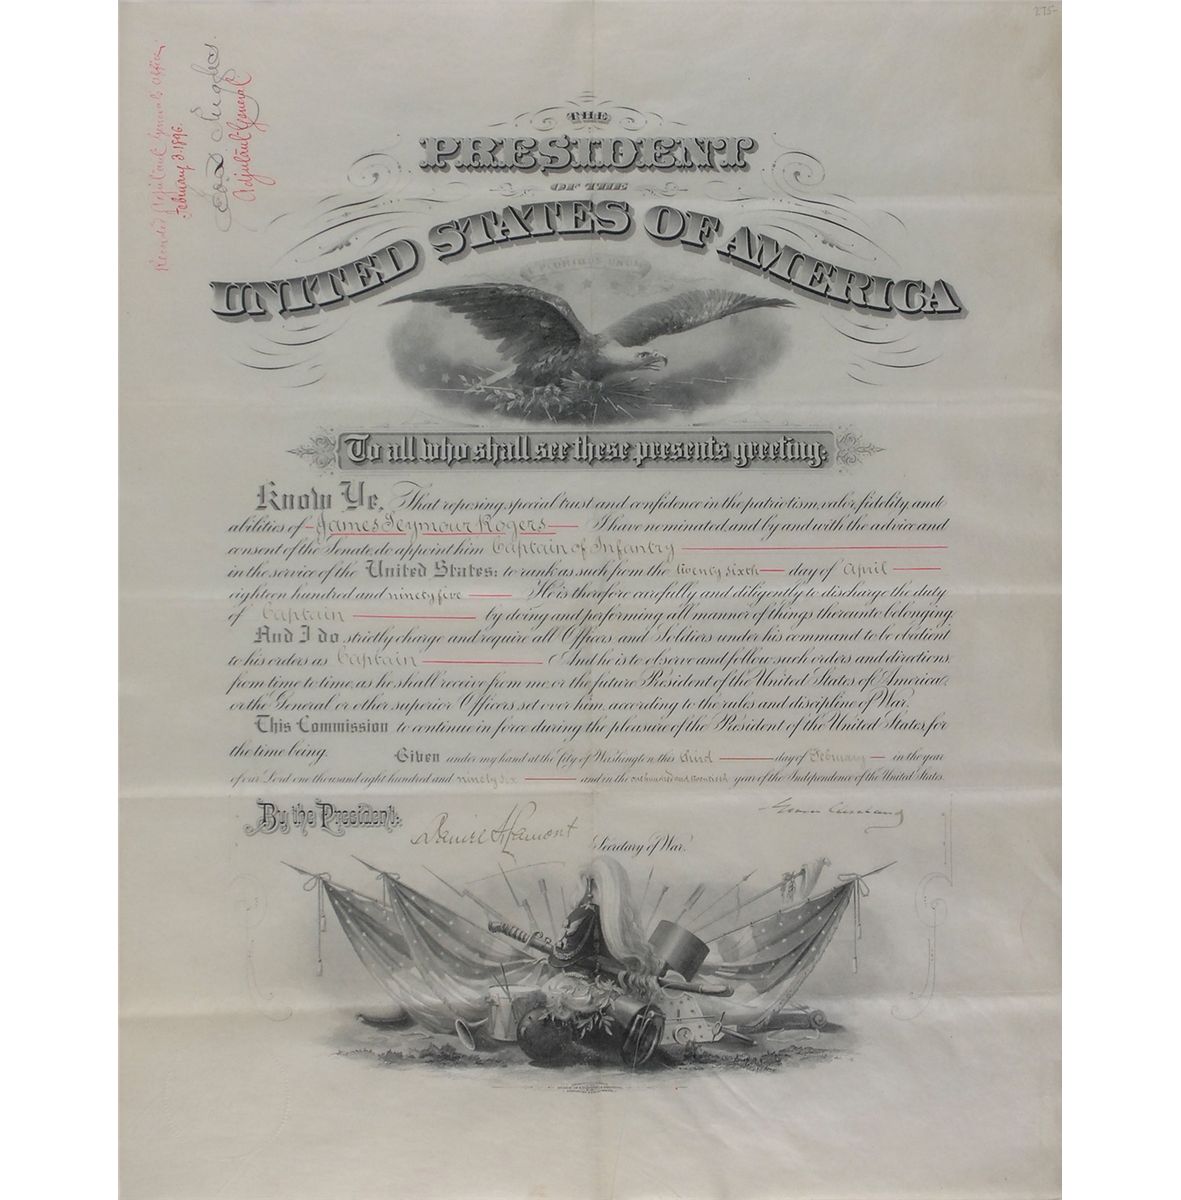 275-
Recorded Adjutant General's Office,
February 3. 1896.
Adjutant General
THE
PRESIDENT
OF THE
UNITED STATES OF AMERICA
E PLURIBUS UNUM
To all who shall see these presents greeting:
Know Ye, That reposing special trust and confidence in the patriotism, valor, fidelity, and
abilities of James Seymour Rogers I have nominated, and by and with the advice and
consent of the Senate, do appoint him Captain of Infantry
in the service of the United States: to rank as such from the twenty sixth day of April
eighteen hundred and ninety five He is therefore carefully and diligently to discharge the duty
of Captain by doing and performing all manner of things thereunto belonging.
And I do strictly charge and require all Officers and Soldiers under his command to be obedient
to his orders as Captain And he is to observe and follow such orders and directions,
from time to time, as he shall receive from me, or the future President of the United States of America,
or the General or other superior Officers set over him, according to the rules and discipline of War.
This Commission to continue in force during the pleasure of the President of the United States, for
the time being. Given under my hand at the City of Washington, this third day of February in the year
of our Lord one thousand eight hundred and ninety six and in the one hundred and twentieth year of the Independence of the United States.
By the President: Grover Cleveland
Daniel S Lamont Secretary of War.